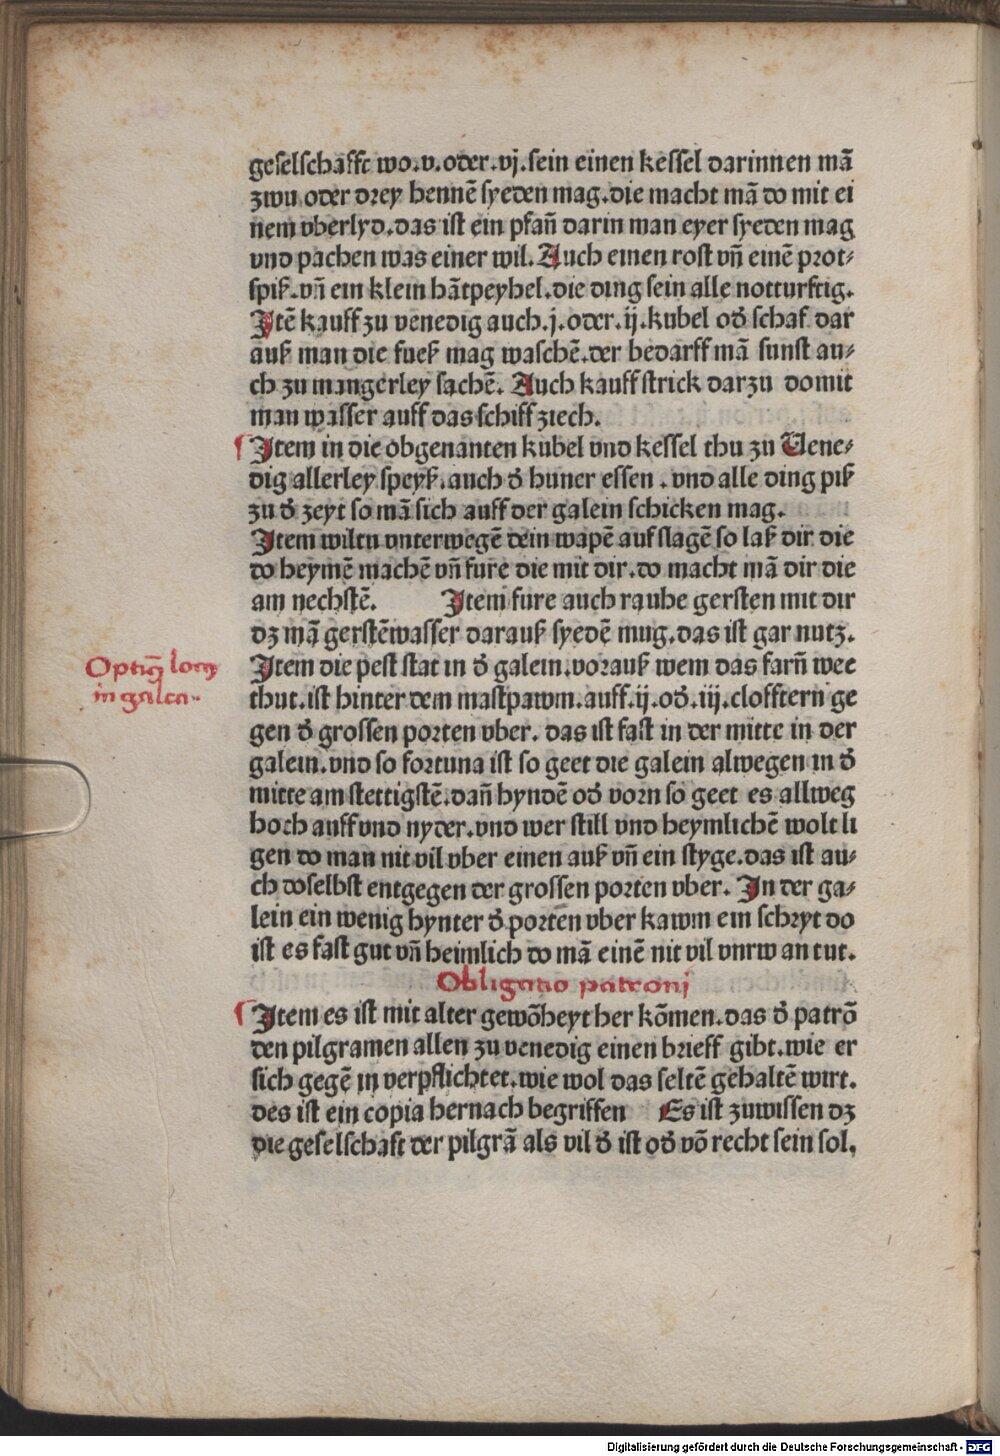 geselschafft wo.v.oder.vj.sein einen kessel darinnen mā
zwu oder drey hennē syeden mag.die macht mā do mit ei
nem vberlyd.das ist ein pfan̄ darin man eyer syeden mag
vnd pachen was einer wil.Auch einen rost vn̄ einē prot⸗
spiß.vn̄ ein klein hātpeyhel.die ding sein alle notturftig.
Jtē kauff zu venedig auch.j.oder.ij.kubel od̄ schaf dar
auß man die fueß mag waschē.der bedarff mā sunst au⸗
ch zu mangerley sachē. Auch kauff strick darzu domit
man wasser auff das schiff ziech.
Jtem in die obgenanten kubel vnd kessel thu zu Vene⸗
dig allerley speyß.auch d̄ huner essen.vnd alle ding piß
zu d̄ zeyt so mā sich auff der galein schicken mag.
Jtem wiltu vnterwegē dein wapē auf slagē so laß dir die
do heymē machē vn̄ fure die mit dir.do macht mā dir die
am nechstē. Jtem fure auch rauhe gersten mit dir
dz mā gerstēwasser darauß syedē mug.das ist gar nutz.
Optimus locus
in galea
Jtem die pest stat in d̄ galein.vorauß wem das farn̄ wee
thut.ist hinter dem mastpawm.auff.ij.od̄.iij.clofftern ge
gen d̄ grossen porten vber. das ist fast in der mitte in der
galein.vnd so fortuna ist so geet die galein alwegen in d̄
mitte am stettigstē.dan̄ hyndē od̄ vorn so geet es allweg
hoch auff vnd nyder.vnd wer still vnd heymlichē wolt li
gen do man nit vil vber einen auß vn̄ ein styge.das ist au⸗
ch doselbst entgegen der grossen porten vber. Jn der ga⸗
lein ein wenig hynter d̄ porten vber kawm ein schryt do
ist es fast gut vn̄ heimlich do mā einē nit vil vnrw an tut.
Obligatio patroni
Jtem es ist mit alter gewōheyt her kōmen.das d̄ patrō
den pilgramen allen zu venedig einen brieff gibt.wie er
sich gegē in verpflichtet.wie wol das seltē gehaltē wirt.
des ist ein copia hernach begriffen Es ist zuwissen dz
die geselschaft der pilgrā als vil d̄ ist od̄ vō recht sein sol.
Digitalisierung gefördert durch die Deutsche Forschungsgemeinschaft - DFG